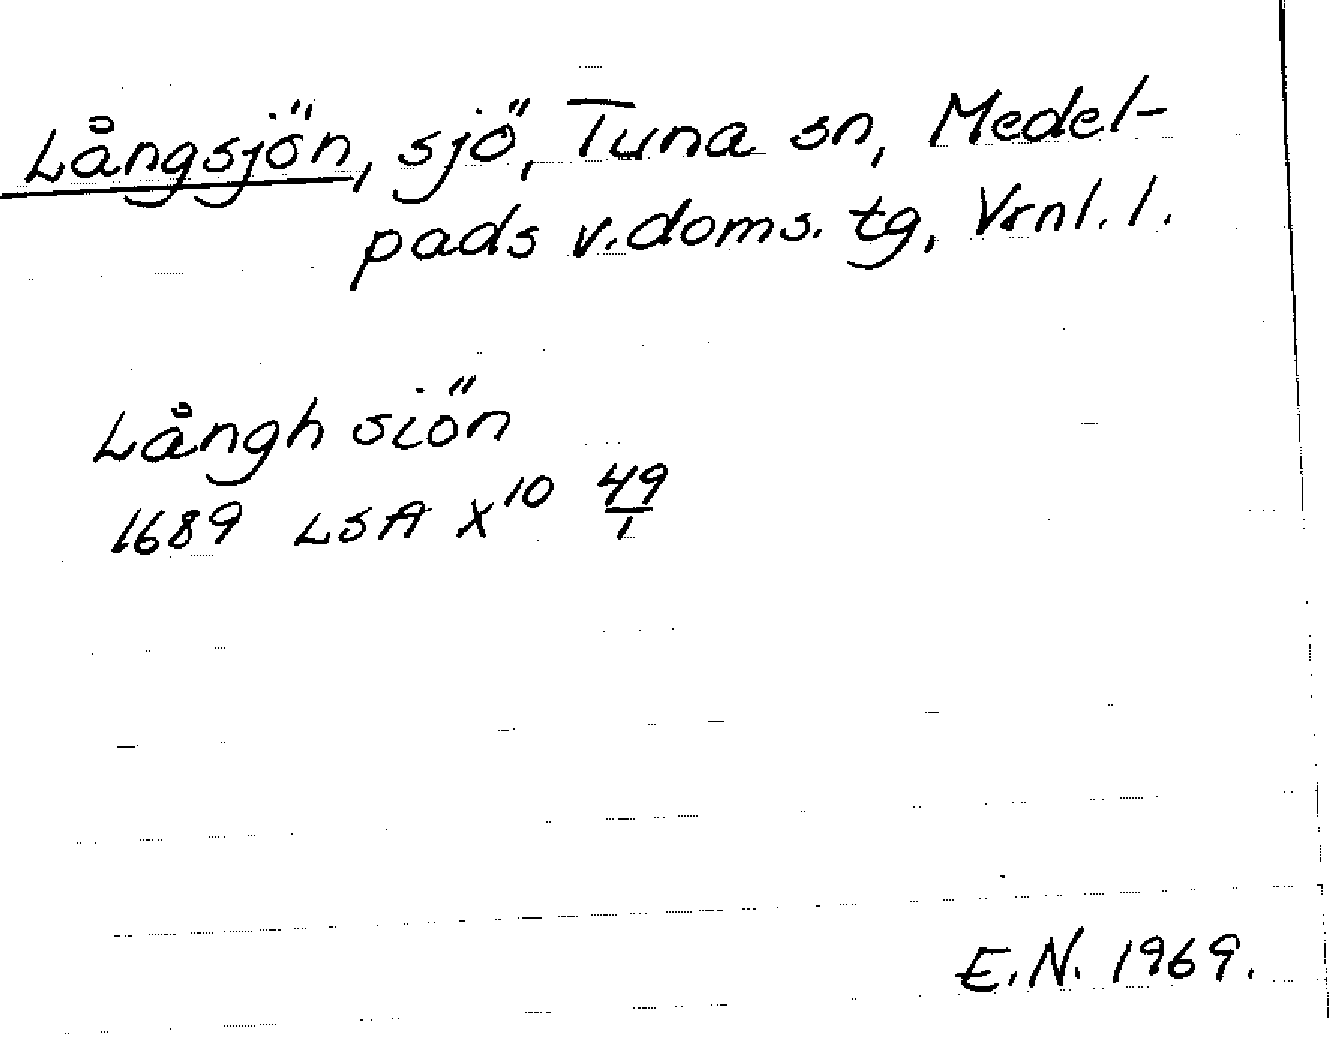 Långsjön, sjö, Tuna sn, Medel-
pads v. doms. tg, Vrnl. l.
Långh siön
1689 LSA X¹⁰ 49/1
E.N. 1969.